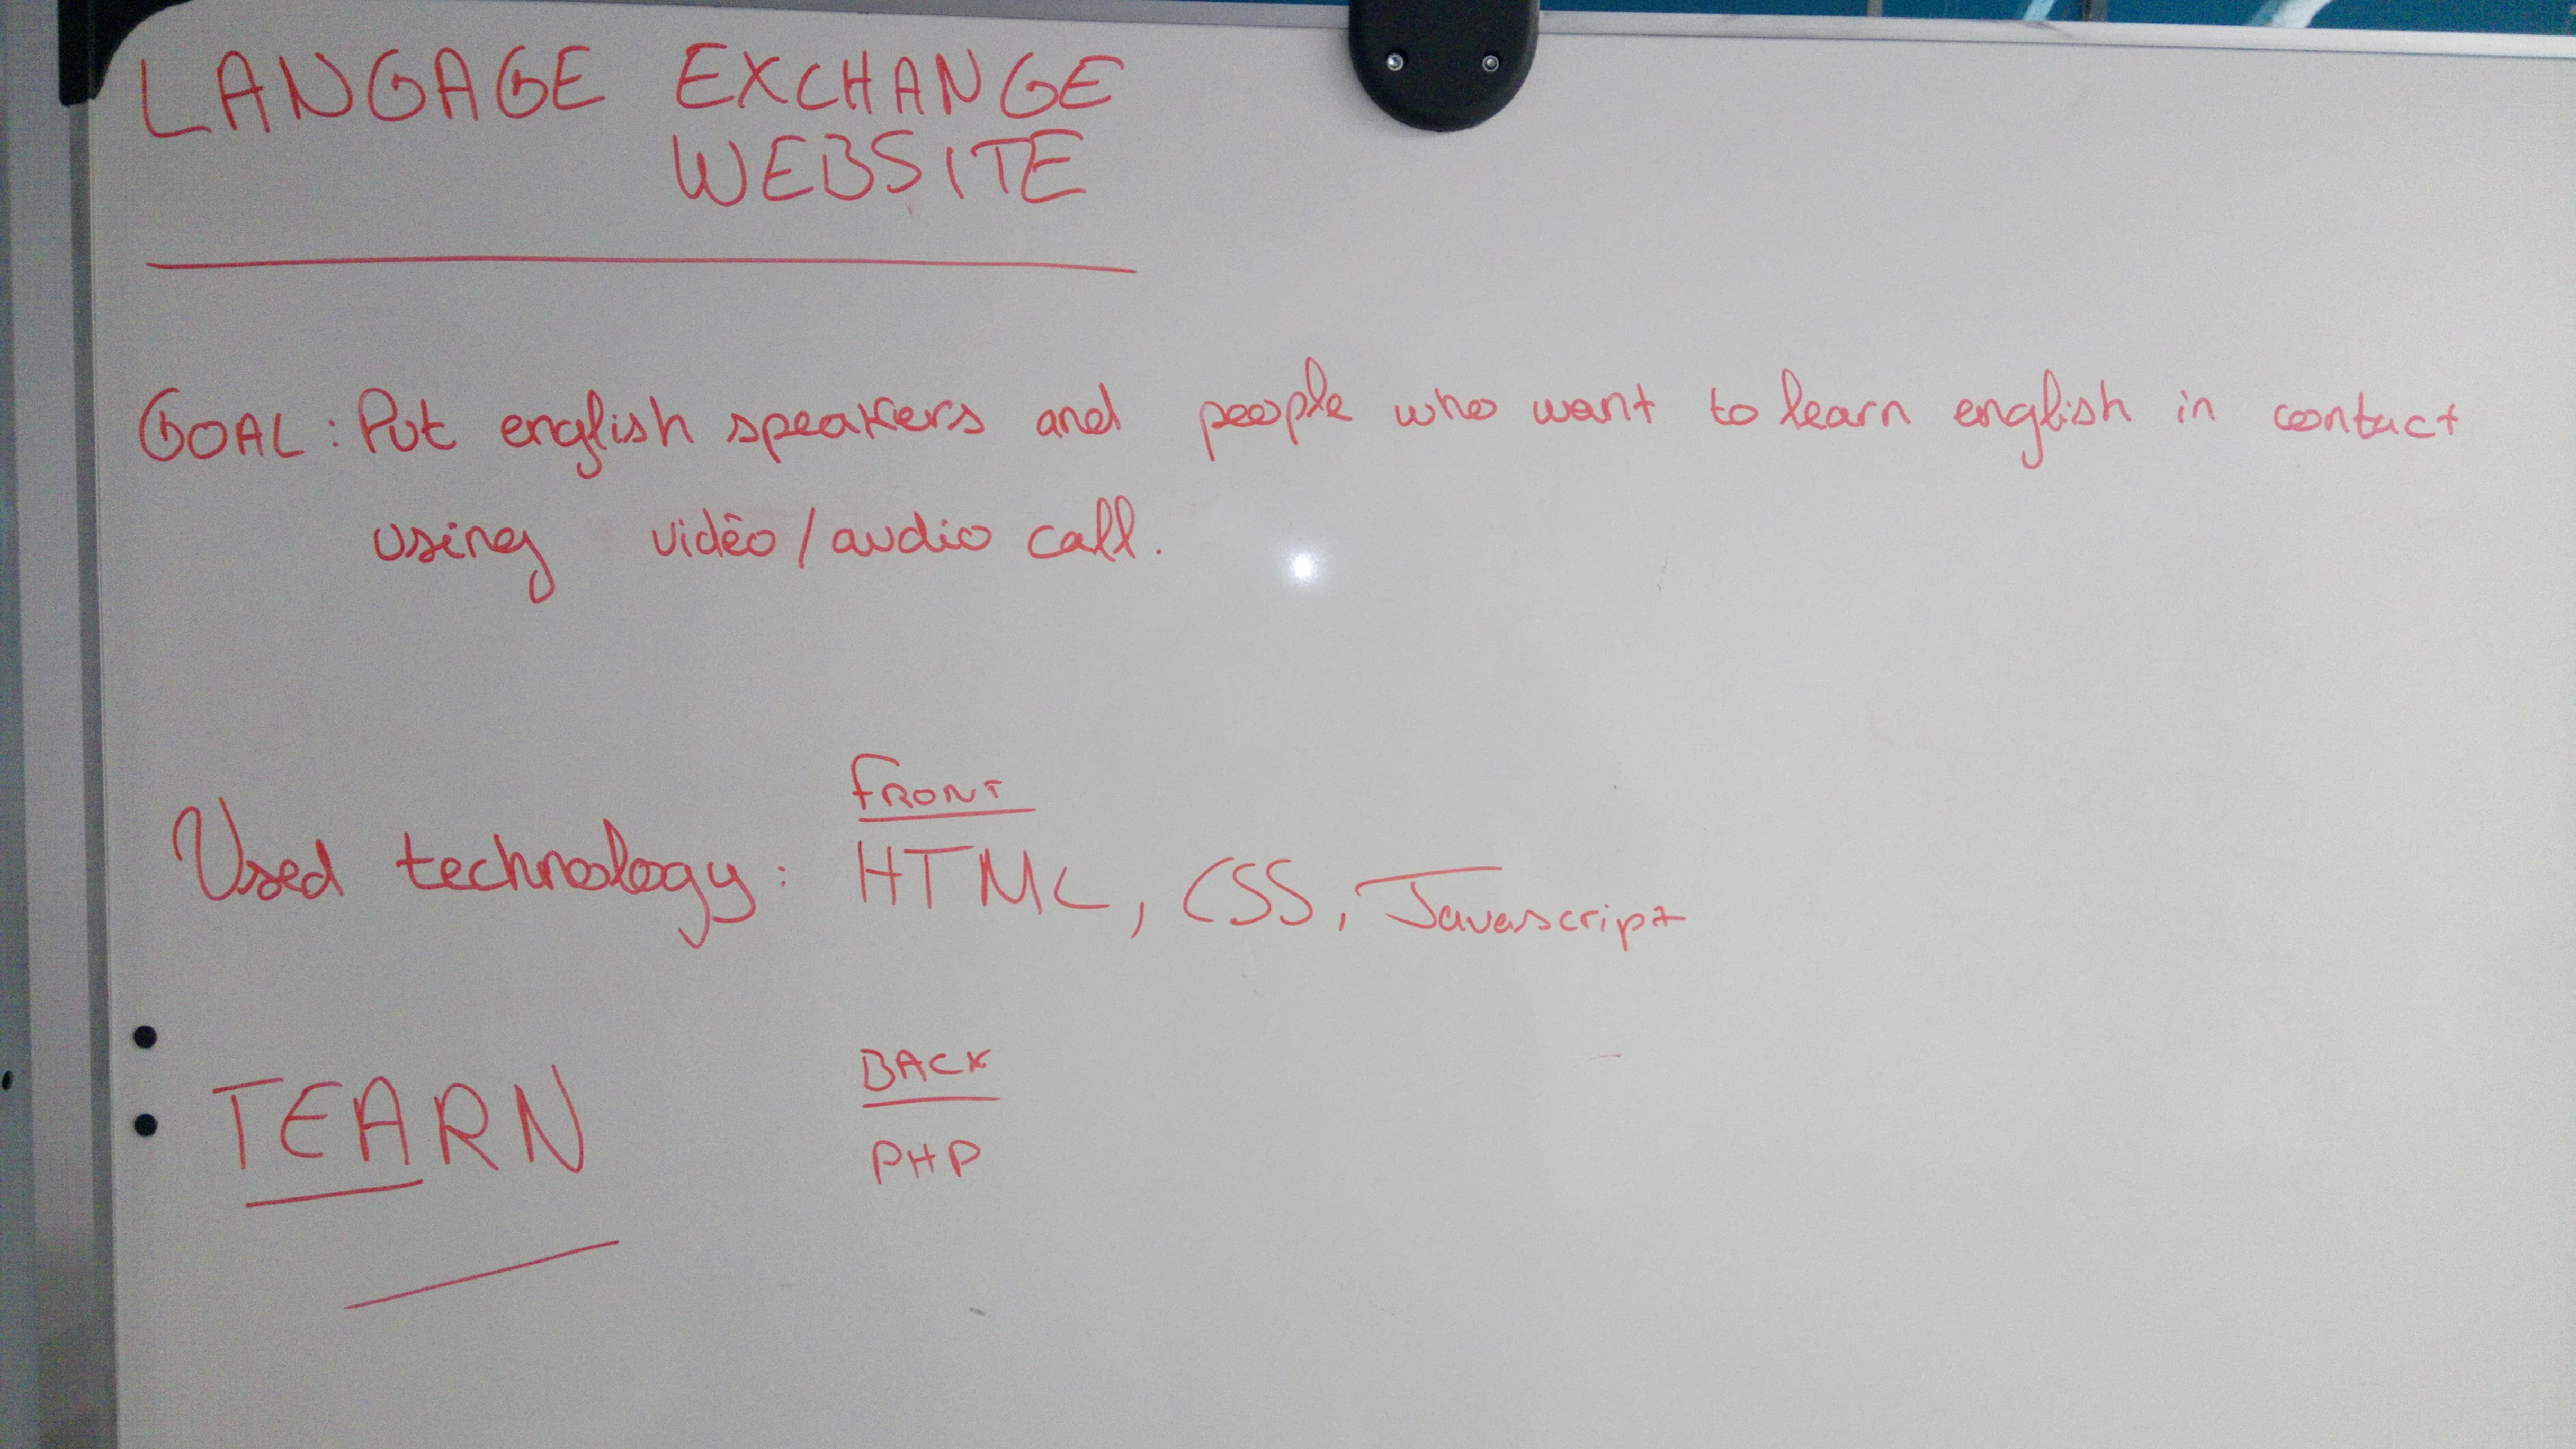 LANGAGE EXCHANGE
WEBSITE
GOAL: Put english speakers and people who want to learn english in contact
using vidéo/audio call.
FRONT
Used technology: HTML, CSS, Javascript
BACK
TEARN
PHP